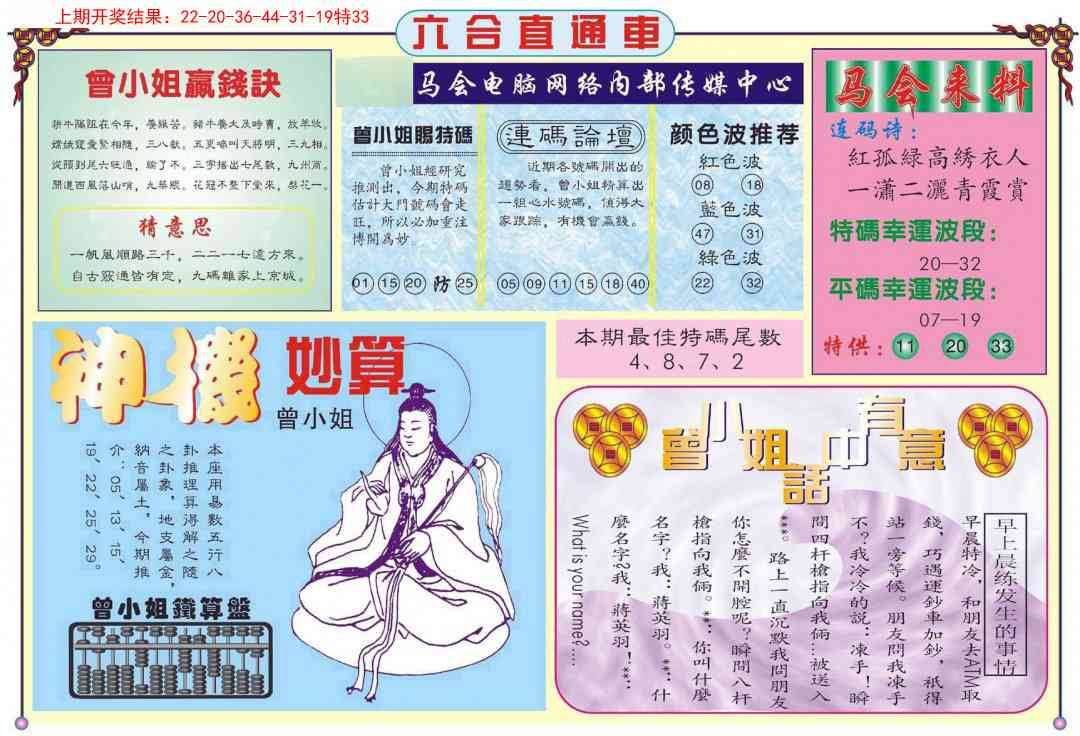 上期开奖结果：22-20-36-44-31-19特33
六合直通車
马会电脑网络内部传媒中心
曾小姐贏錢訣
猜意思
一帆風順路三千，二二一七遠方來。
自古竅通皆有定，九碼離家上京城。
曾小姐賜特碼
曾小姐經研究
推測出，今期特碼
估計大門號碼會走
旺，所以必加重注
博開為妙
01 15 20 防 25
連碼論壇
近期各號碼開出的
趨勢看，曾小姐精算出
一組心水號碼，值得大
家跟踪，有機會贏錢。
05 09 11 15 18 40
颜色波推荐
紅色波
08 18
藍色波
47 31
綠色波
22 32
马会来料
连码诗：
紅孤緑高綉衣人
一瀟二灑青霞賞
特碼幸運波段：
20—32
平碼幸運波段：
07—19
特供：11 20 33
本期最佳特碼尾數
4、8、7、2
神機妙算
曾小姐
本座用易數五行八
卦推理算得解之隨
之卦象，地支屬金，
納音屬土，今期推
介：05、13、15、
19、22、25、29。
曾小姐鐵算盤
曾小姐話中有意
早上晨练发生的事情
早晨特冷，和朋友去ATM取
錢，巧遇運鈔車加鈔，祇得
站一旁等候。朋友問我凍手
不？我冷冷的説：凍手！瞬
間四杆槍指向我倆…被送入
***。路上一直沉默我問朋友
你怎麼不開腔呢？瞬間八杆
槍指向我倆。**：你叫什麼
名字？我：蔣英羽。**：什
麼名字?我：蔣英羽！**：
What is your name?....